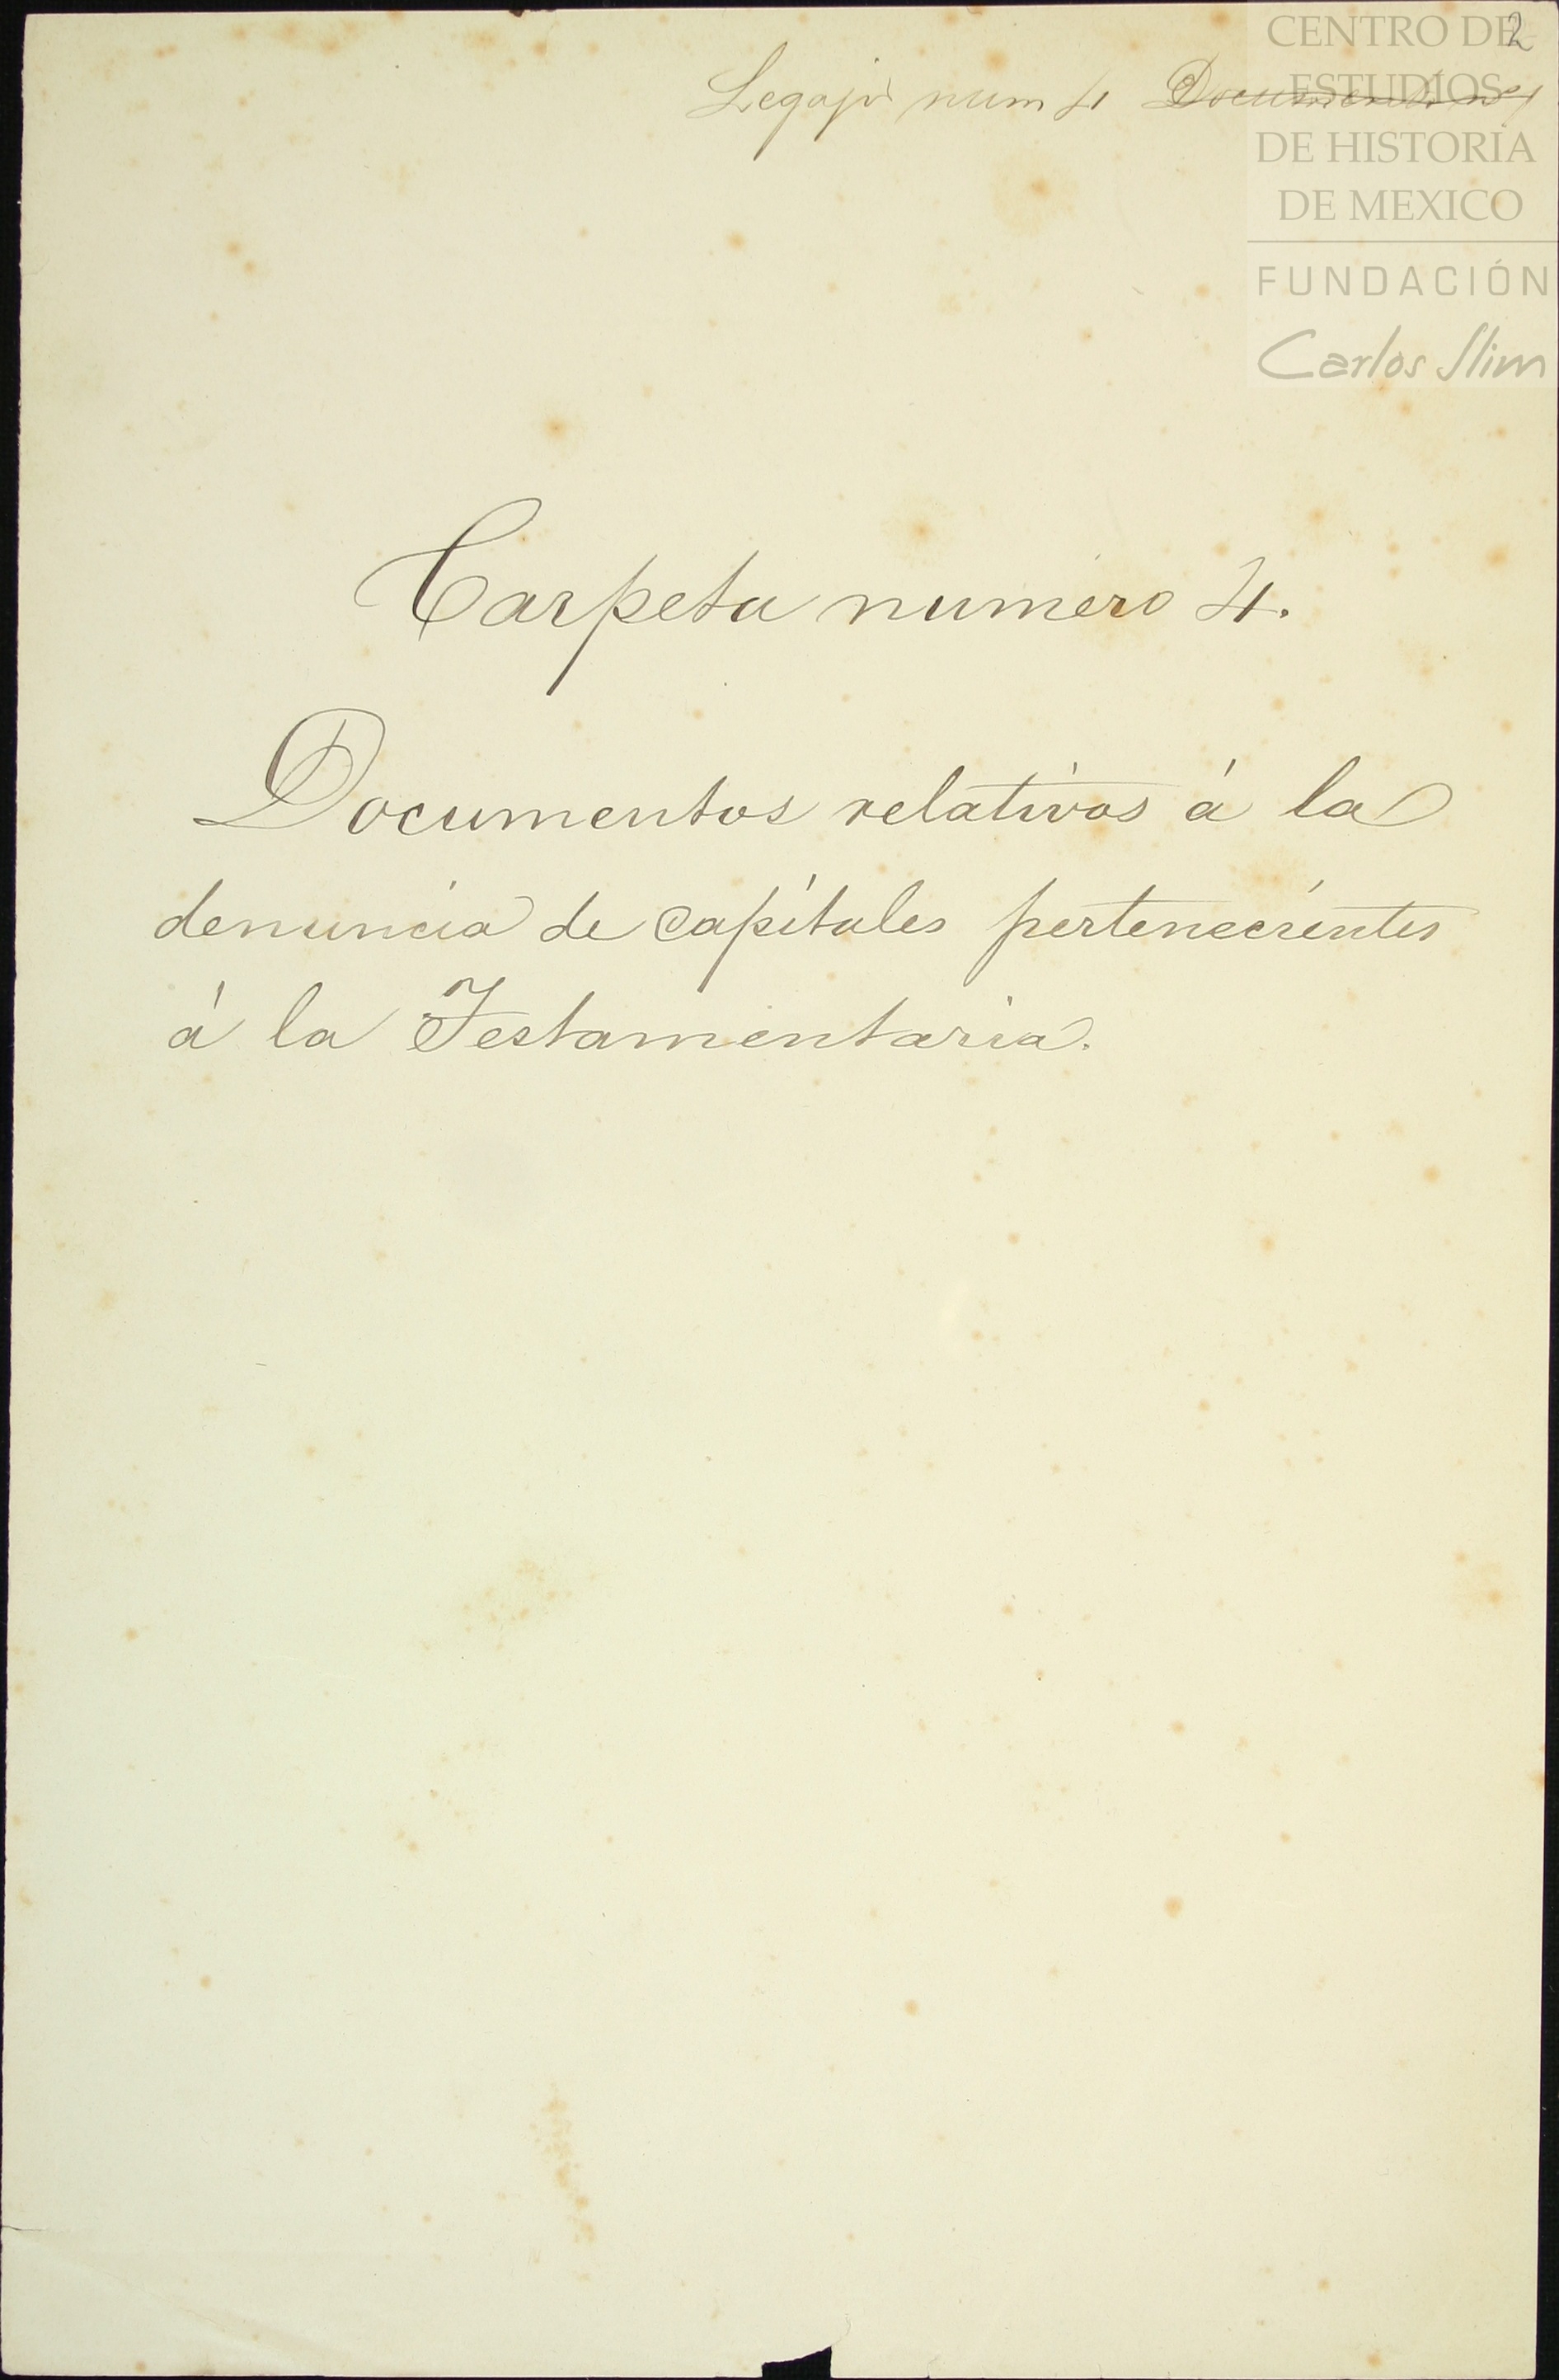 2
Legajo num 4 Documento no 1
CENTRO DE
ESTUDIOS
DE HISTORIA
DE MEXICO
FUNDACIÓN
Carlos Slim
Carpeta numero 4.
Documentos relativos á la
denuncia de capitales pertenecientes
á la Testamentaria.